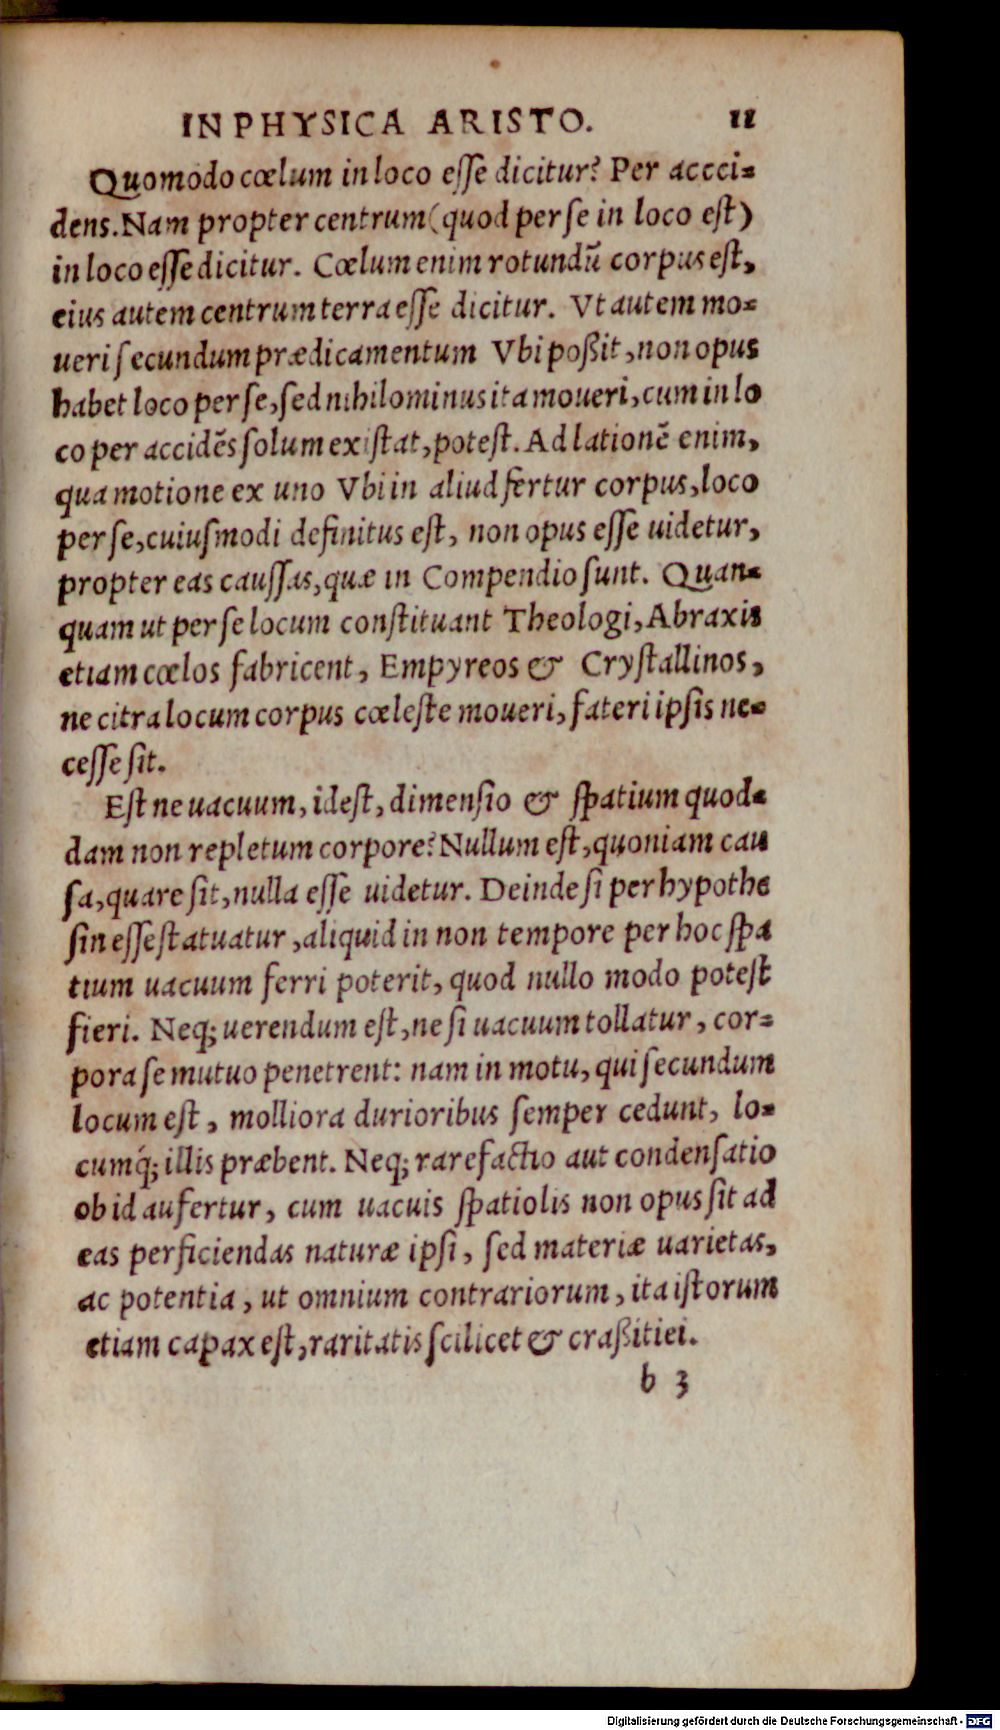 IN PHYSICA ARISTO. 11
Quomodo cœlum in loco eſſe dicitur? Per accci-
dens. Nam propter centrum (quod per ſe in loco eſt)
in loco eſſe dicitur. Cœlum enim rotundū corpus eſt,
eius autem centrum terra eſſe dicitur. Vt autem mo-
ueri ſecundum prædicamentum Vbi poßit, non opus
habet loco per ſe, ſed nihilominus ita moueri, cum in lo
co per accidēs ſolum existat, poteſt. Ad lationē enim,
qua motione ex uno Vbi in aliud fertur corpus, loco
per ſe, cuiuſmodi definitus eſt, non opus eſſe uidetur,
propter eas cauſſas, quæ in Compendio ſunt. Quan-
quam ut per ſe locum conſtituant Theologi, Abraxis
etiam cœlos fabricent, Empyreos & Cryſtallinos,
ne citra locum corpus cœleſte moueri, fateri ipſis ne-
ceſſe ſit.
Eſt ne uacuum, ideſt, dimenſio & ſpatium quod-
dam non repletum corpore? Nullum eſt, quoniam cau
ſa, quare ſit, nulla eſſe uidetur. Deinde ſi per hypothe
ſin eſſe ſtatuatur, aliquid in non tempore per hoc ſpa
tium uacuum ferri poterit, quod nullo modo poteſt
fieri. Neq; uerendum eſt, ne ſi uacuum tollatur, cor-
pora ſe mutuo penetrent: nam in motu, qui ſecundum
locum eſt, molliora durioribus ſemper cedunt, lo-
cumq́; illis præbent. Neq; rarefactio aut condenſatio
ob id aufertur, cum uacuis ſpatiolis non opus ſit ad
eas perficiendas naturæ ipſi, ſed materiæ uarietas,
ac potentia, ut omnium contrariorum, ita iſtorum
etiam capax eſt, raritatis ſcilicet & craßitiei.
b 3
Digitalisierung gefördert durch die Deutsche Forschungsgemeinschaft - DFG